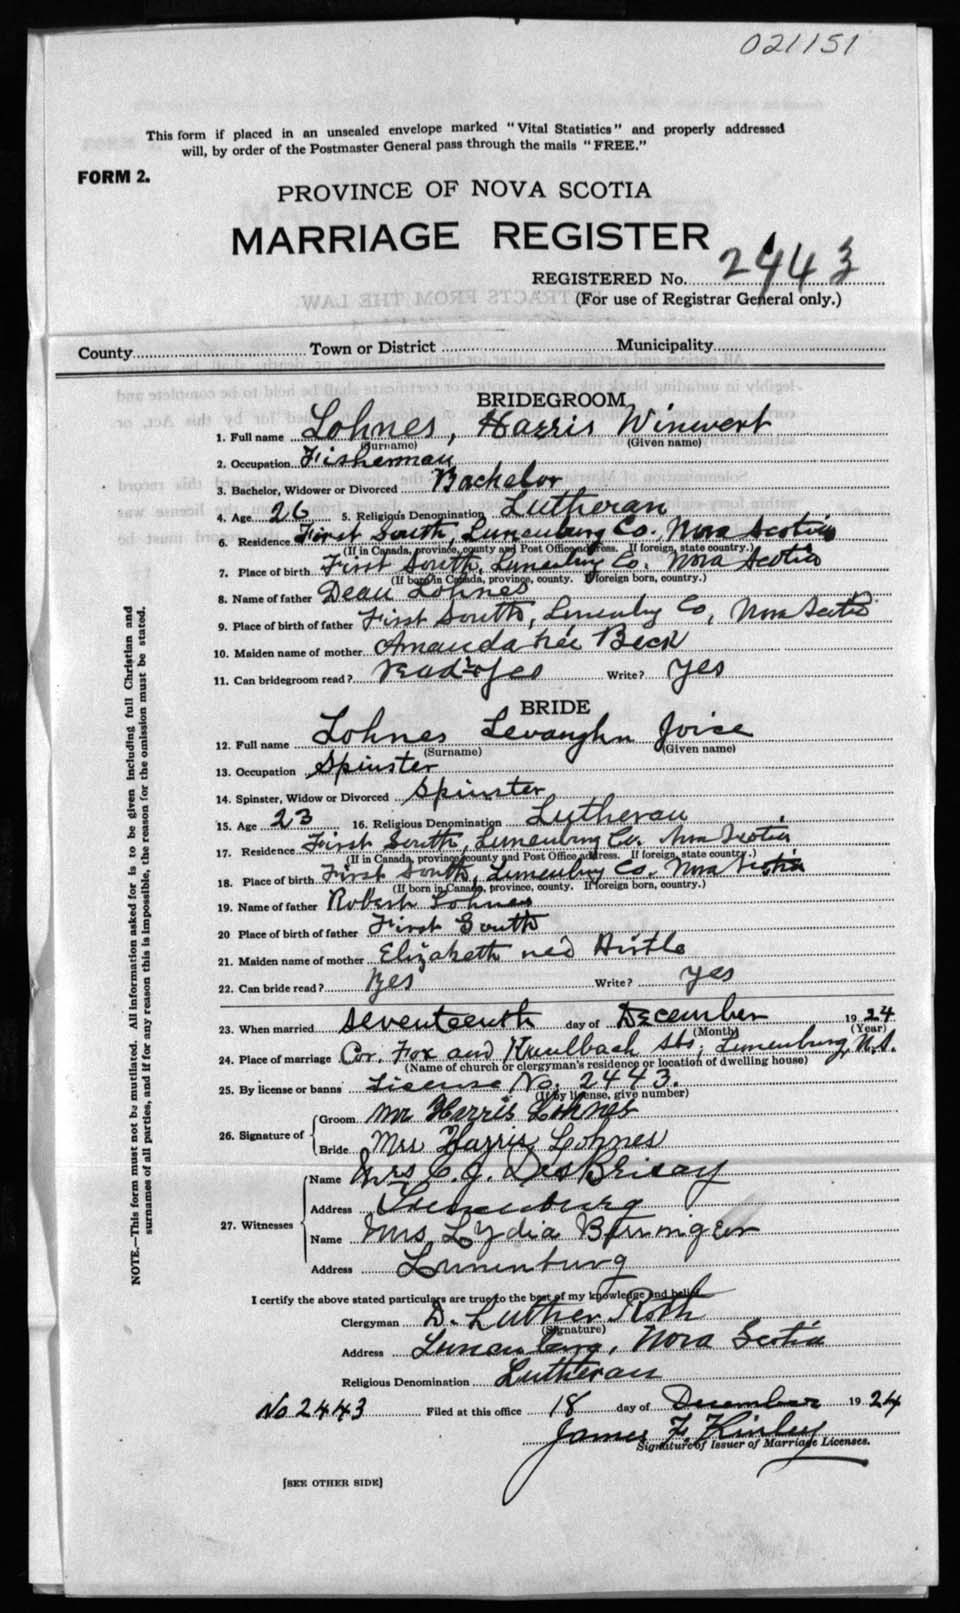 021151
This form if placed in an unsealed envelope marked "Vital Statistics" and properly addressed
will, by order of the Postmaster General pass through the mails "FREE."
FORM 2.
PROVINCE OF NOVA SCOTIA
MARRIAGE REGISTER
REGISTERED No. 2443
(For use of Registrar General only.)
County Town or District Municipality
BRIDEGROOM
1. Full name Lohnes, Harris Winwert
(Surname) (Given name)
2. Occupation Fisherman
3. Bachelor, Widower or Divorced Bachelor
4. Age 26 5. Religious Denomination Lutheran
6. Residence First South, Lunenburg Co., Nova Scotia
(If in Canada, province, county and Post Office address. If foreign, state country.)
7. Place of birth First South, Lunenburg Co. Nova Scotia
(If born in Canada, province, county. If foreign born, country.)
8. Name of father Dean Lohnes
9. Place of birth of father First South, Lunenburg Co, Nova Scotia
10. Maiden name of mother Amanda née Beck
11. Can bridegroom read? Yes Write? Yes
BRIDE
12. Full name Lohnes Levaughn Joice
(Surname) (Given name)
13. Occupation Spinster
14. Spinster, Widow or Divorced Spinster
15. Age 23 16. Religious Denomination Lutheran
17. Residence First South, Lunenburg Co. Nova Scotia
(If in Canada, province, county and Post Office address. If foreign, state country.)
18. Place of birth First South, Lunenburg Co. Nova Scotia
(If born in Canada, province, county. If foreign born, country.)
19. Name of father Robert Lohnes
20 Place of birth of father First South
21. Maiden name of mother Elizabeth neé Hirtle
22. Can bride read? Yes Write? Yes
23. When married Seventeenth day of December 1924
(Month) (Year)
24. Place of marriage Cor. Fox and Kaulbach Sts; Lunenburg, N.S.
(Name of church or clergyman's residence or location of dwelling house)
25. By license or banns License No. 2443.
(If by license, give number)
26. Signature of Groom Mr Harris Lohnes
Bride Mrs Harris Lohnes
27. Witnesses Name Mrs C. J. DesBrisay
Address Lunenburg
Name Mrs Lydia Berringer
Address Lunenburg
I certify the above stated particulars are true to the best of my knowledge and belief
Clergyman D. Luther Roth
(Signature)
Address Lunenburg, Nova Scotia
Religious Denomination Lutheran
No 2443 Filed at this office 18 day of December 1924
James F. Kinley
Signature of Issuer of Marriage Licenses.
[SEE OTHER SIDE]
NOTE.—This form must not be mutilated. All information asked for is to be given including full Christian and
surnames of all parties, and if for any reason this is impossible, the reason for the omission must be stated.